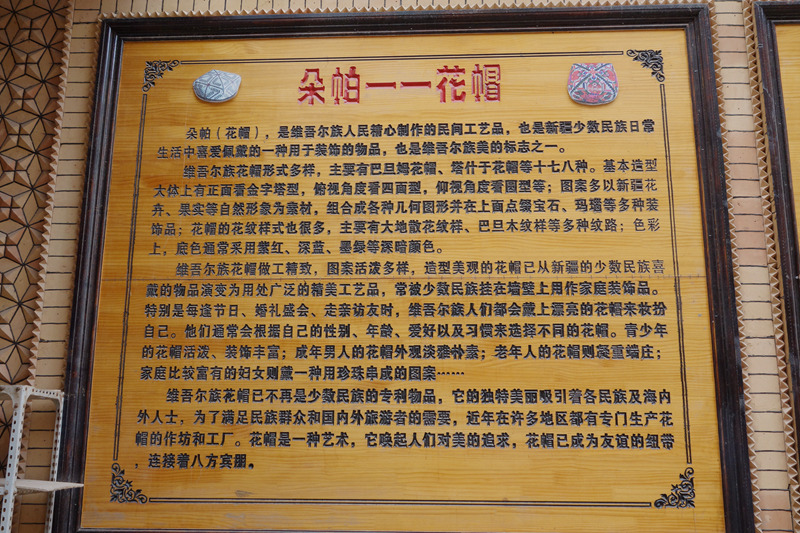 朵帕一一花帽
朵帕（花帽），是维吾尔族人民精心制作的民间工艺品，也是新疆少数民族日常
生活中喜爱佩戴的一种用于装饰的物品，也是维吾尔族美的标志之一。
维吾尔族花帽形式多样，主要有巴旦姆花帽、塔什干花帽等十七八种。基本造型
大体上有正面看金字塔型，俯视角度看四面型，仰视角度看圆型等；图案多以新疆花
卉、果实等自然形象为素材，组合成各种几何图形并在上面点缀宝石、玛瑙等多种装
饰品；花帽的花纹样式也很多，主要有大地散花纹样、巴旦木纹样等多种纹路；色彩
上，底色通常采用紫红、深蓝、墨绿等深暗颜色。
维吾尔族花帽做工精致，图案活泼多样，造型美观的花帽已从新疆的少数民族喜
戴的物品演变为用处广泛的精美工艺品，常被少数民族挂在墙壁上用作家庭装饰品。
特别是每逢节日、婚礼盛会、走亲访友时，维吾尔族人们都会戴上漂亮的花帽来妆扮
自己。他们通常会根据自己的性别、年龄、爱好以及习惯来选择不同的花帽。青少年
的花帽活泼、装饰丰富；成年男人的花帽外观淡雅朴素；老年人的花帽则凝重端庄；
家庭比较富有的妇女则戴一种用珍珠串成的图案……
维吾尔族花帽已不再是少数民族的专利物品，它的独特美丽吸引着各民族及海内
外人士，为了满足民族群众和国内外旅游者的需要，近年在许多地区都有专门生产花
帽的作坊和工厂。花帽是一种艺术，它唤起人们对美的追求，花帽已成为友谊的纽带
，连接着八方宾朋。